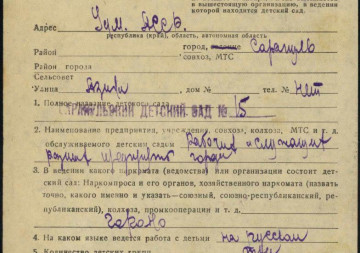 в вышестоящую организацию, в ведении
которой находится детский сад.
Адрес Удм. АССР
республика (край), область, автономная область
Район город, Сарапуль
совхоз, МТС
Район города
Сельсовет
Улица Азина , дом № тел. № нет
1. Полное название детского сада
САРАПУЛЬСКИЙ ДЕТСКИЙ САД № 15
2. Наименование предприятия, учреждения, совхоза, колхоза, МТС и т. д.
обслуживаемого детским садом рабочих и служащих
города
3. В ведении какого наркомата (ведомства) или организации состоит дет-
ский сад: Наркомпроса и его органов, хозяйственного наркомата (назвать
точно, какого именно и указать—союзный, союзно-республиканский, рес-
публиканский), колхоза, промкооперации и т. д.
4. На каком языке ведется работа с детьми на русском